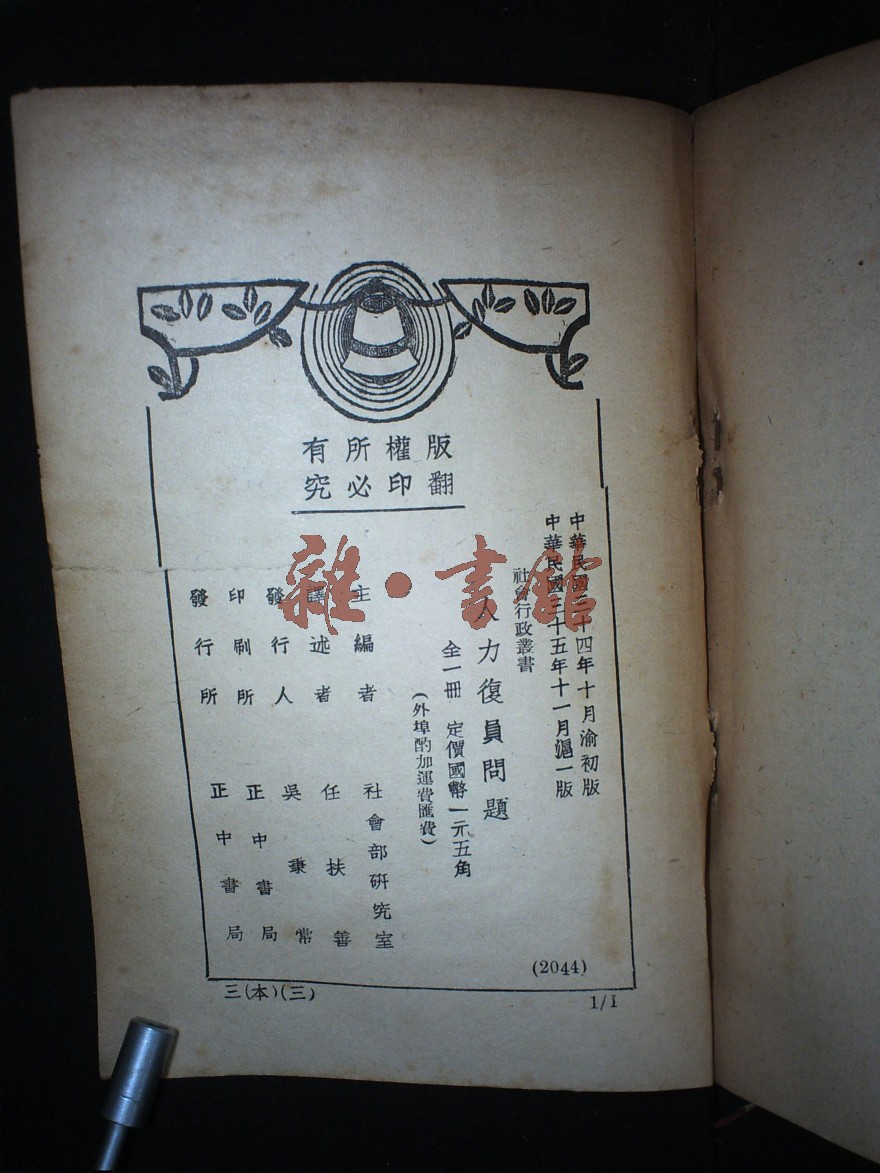 版權所有
翻印必究
中華民國三十四年十月渝初版
中華民國三十五年十一月滬一版
社會行政叢書
人力復員問題
全一冊 定價國幣一元五角
(外埠酌加運費匯費)
主編者 社會部研究室
譯述者 任扶善
發行人 吳秉常
印刷所 正中書局
發行所 正中書局
(2044)
三(本)(三)
1/1
雜·書館